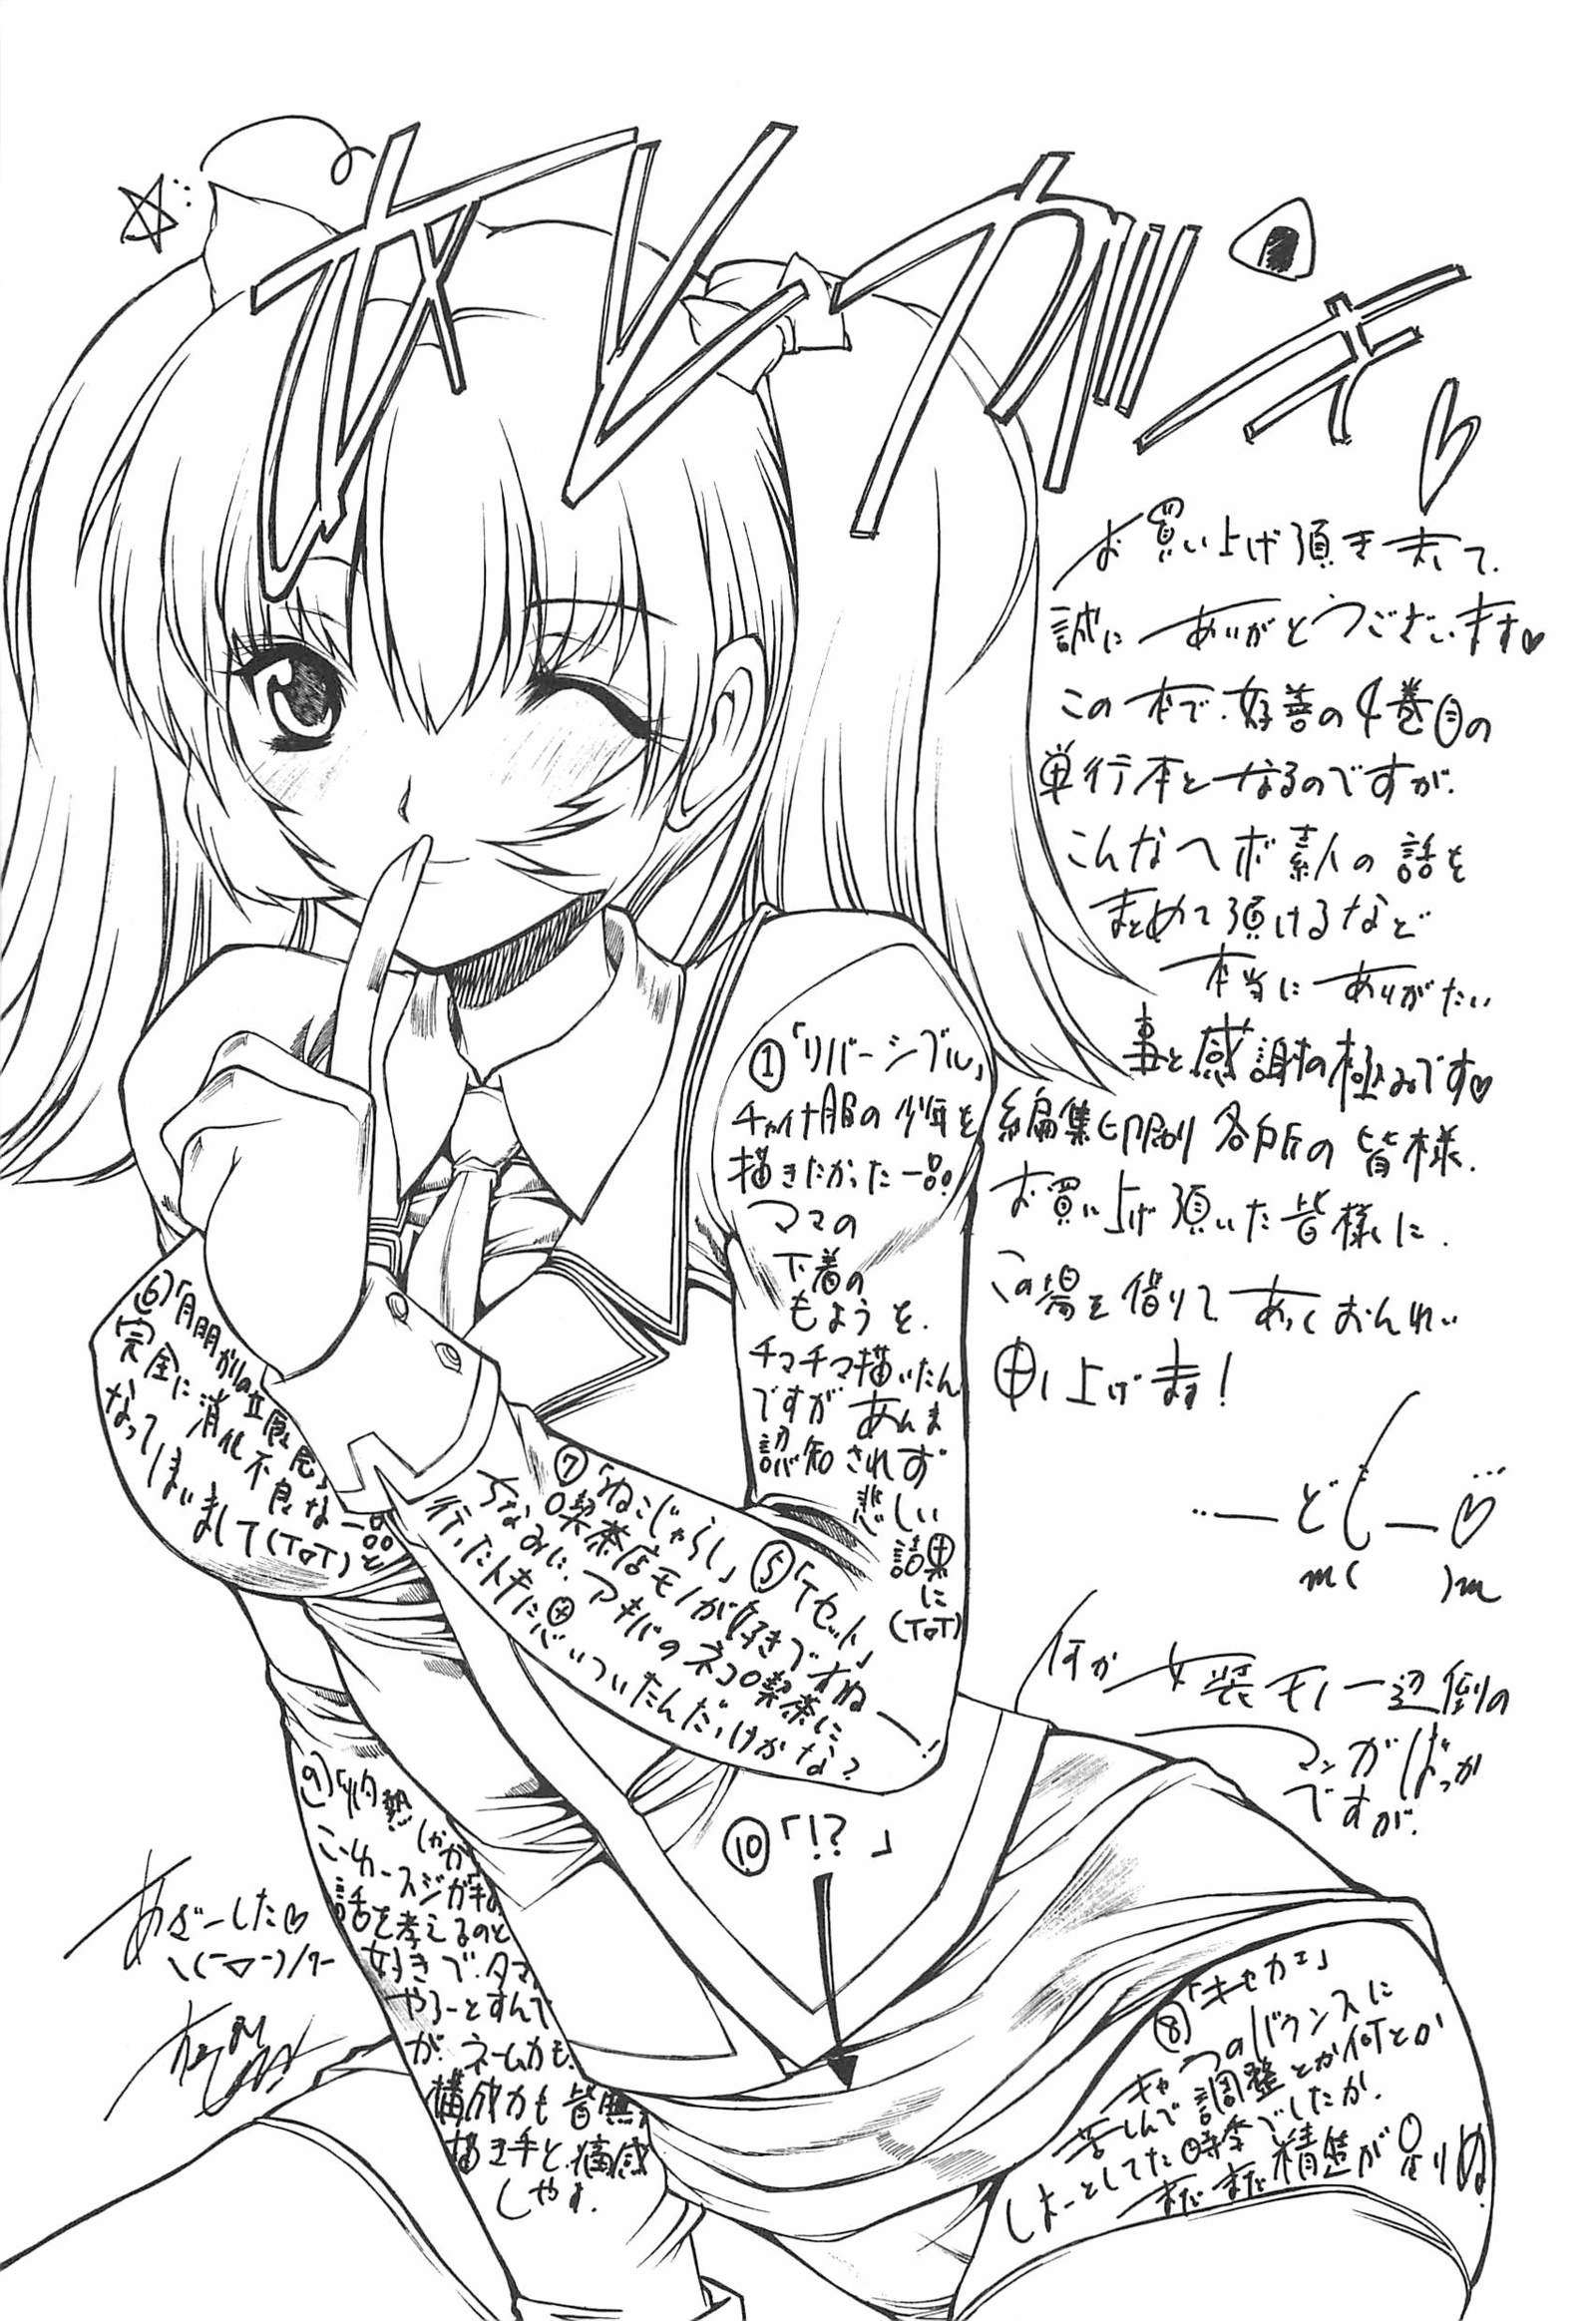 アレアガキ
お買い上げ頂きまして、
誠にありがとうございます♡
この本で、好善の4巻目の
単行本となるのですが、
こんなヘボ素人の話を
まとめて頂けるなど
本当にありがたい
事と感謝の極みです♡
編集印刷り各所の皆様、
お買い上げ頂いた皆様に、
この場を借りてあっくおんれい
申し上げます!
…ーどもー♡…
m( )m
何か女装モノ一辺倒の
マンガばっか
ですが、
①「リバーシブル」
チャイナ服の少年を
描きたかった一品!
ママの
下着の
もようを、
チマチマ描いたん
ですがあんま
認知されず
悲しい
結果
に
(ToT)
⑤「Tセット」
⑥「月明かりの
完全に消化不良な一品と
なってしまいまして(ToT)
⑦「ねこじゃらし」
喫茶店モノが好きですねー!
ちなみに、アキバのネコ喫茶に
行った時に思いついたんだっけかな?
⑧「キセカエ」
キャラのバウンスに
苦しんで調整とか何とか
しよーとしてた時季でしたか、
まだまだ精進が足りぬ!
⑨「灼熱
こーゆースジが
話を考えるのと
好きで、タマ
やろーとすんで
が、ネーム力も、
構成力も皆無
描き手と、痛感
しやす。
⑩「!?」
あざーした♡
ヽ(ー▽ー)/ワー